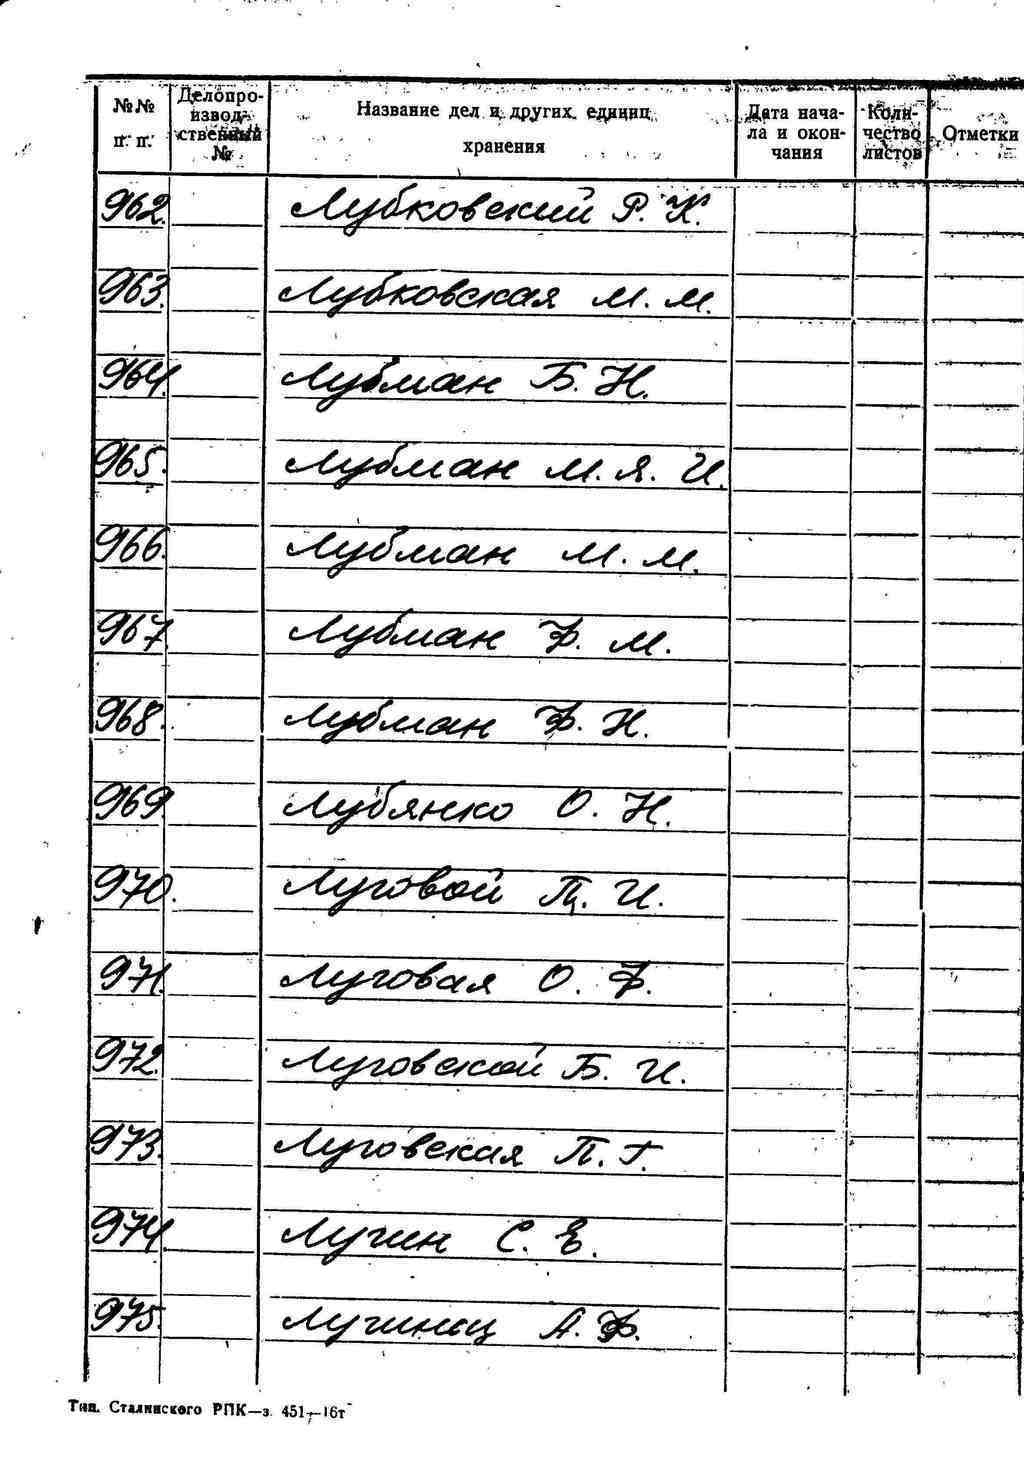 №№ п. п.
Делопроизводственный №
Название дел и других единиц хранения
Дата начала и окончания
Количество листов
Отметки
962. Лубковский Р. К.
963. Лубковская М. М.
964. Лубман Б. Н.
965. Лубман М. Я. И.
966. Лубман М. М.
967 Лубман Ф. М.
968. Лубман Ф. Н.
969. Лубянко О. Н.
970. Луговой П. И.
971. Луговая О. Ф.
972. Луговской Б. И.
973. Луговская П. Г.
974. Лугин С. Е.
975. Лугинец А. Ф.
Тип. Сталинского РПК—з. 451—16т